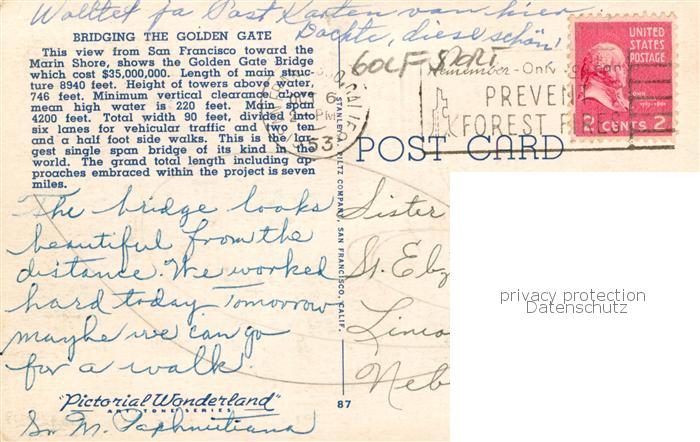 Wolltet ja Post Karten von hier.
Dachte, diese schön!
GOLF SPORT
BRIDGING THE GOLDEN GATE
This view from San Francisco toward the
Marin Shore, shows the Golden Gate Bridge
which cost $35,000,000. Length of main struc-
ture 8940 feet. Height of towers above water,
746 feet. Minimum vertical clearance above
mean high water is 220 feet. Main span
4200 feet. Total width 90 feet, divided into
six lanes for vehicular traffic and two ten
and a half foot side walks. This is the lar-
gest single span bridge of its kind in the
world. The grand total length including ap-
proaches embraced within the project is seven
miles.
The bridge looks
beautiful from the
distance. We worked
hard today. Tomorrow
maybe we can go
for a walk.
"Pictorial Wonderland"
ART TONE SERIES
Sr. M. Paphnutiana
CALIF.
6
PM
53
Remember - Only
PREVENT
FOREST FIRES
UNITED
STATES
POSTAGE
2 CENTS 2
POST CARD
STANLEY A. PILTZ COMPANY, SAN FRANCISCO, CALIF.
87
Sister
St. Eliz
Linco
Neb
privacy protection
Datenschutz